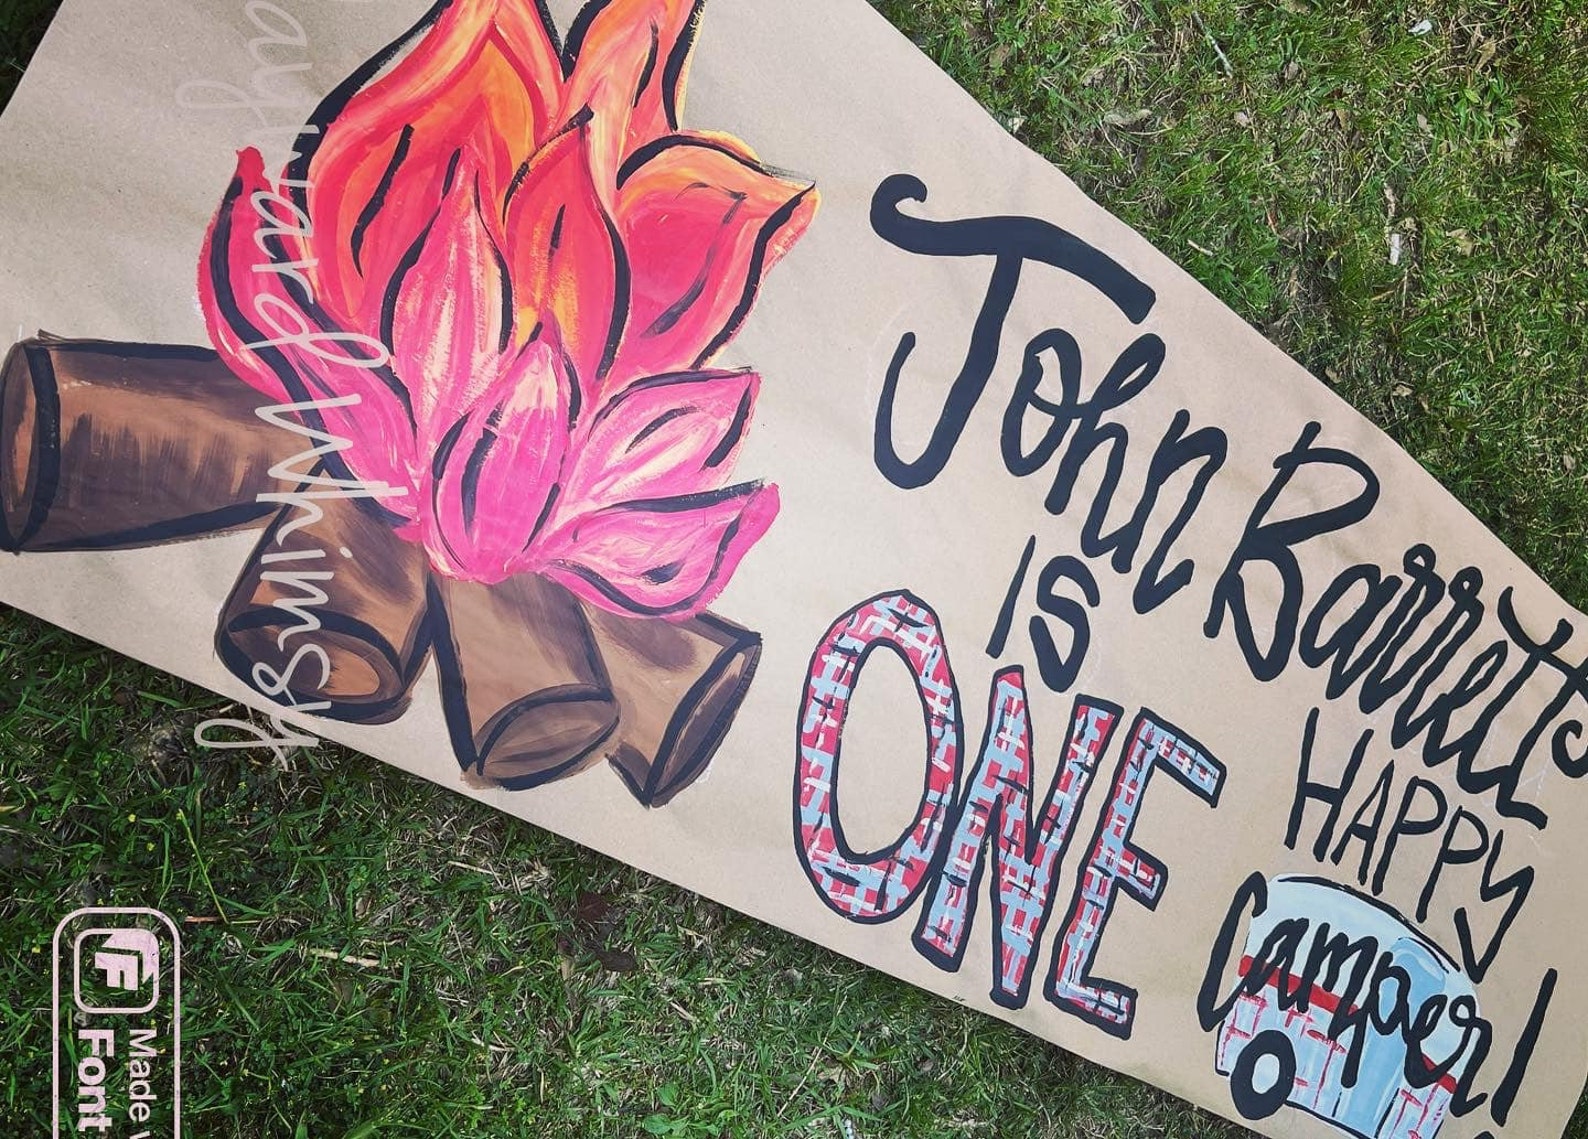 John Barrett
is
ONE
HAPPY
Camper!
Whimsy
Made
Font